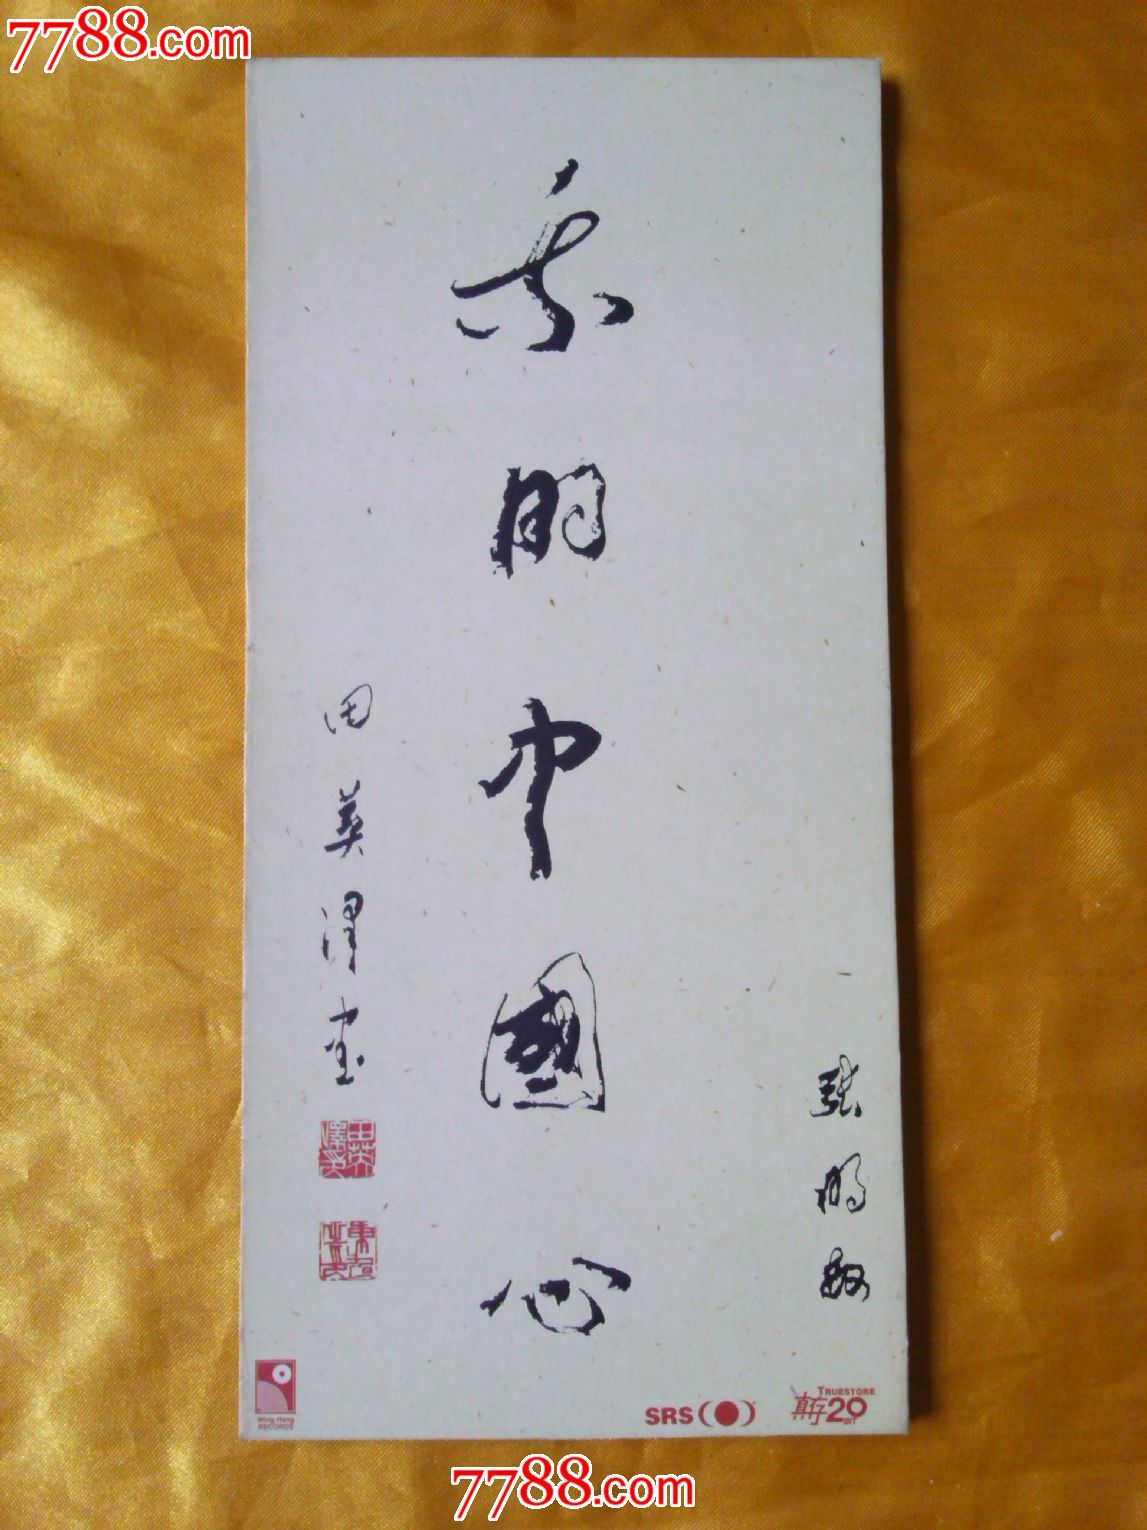 7788.com
我的中国心
张明敏
田英泽书
Wing Hang
RECORDS
SRS
TRUESTORE
真存20
BIT
7788.com